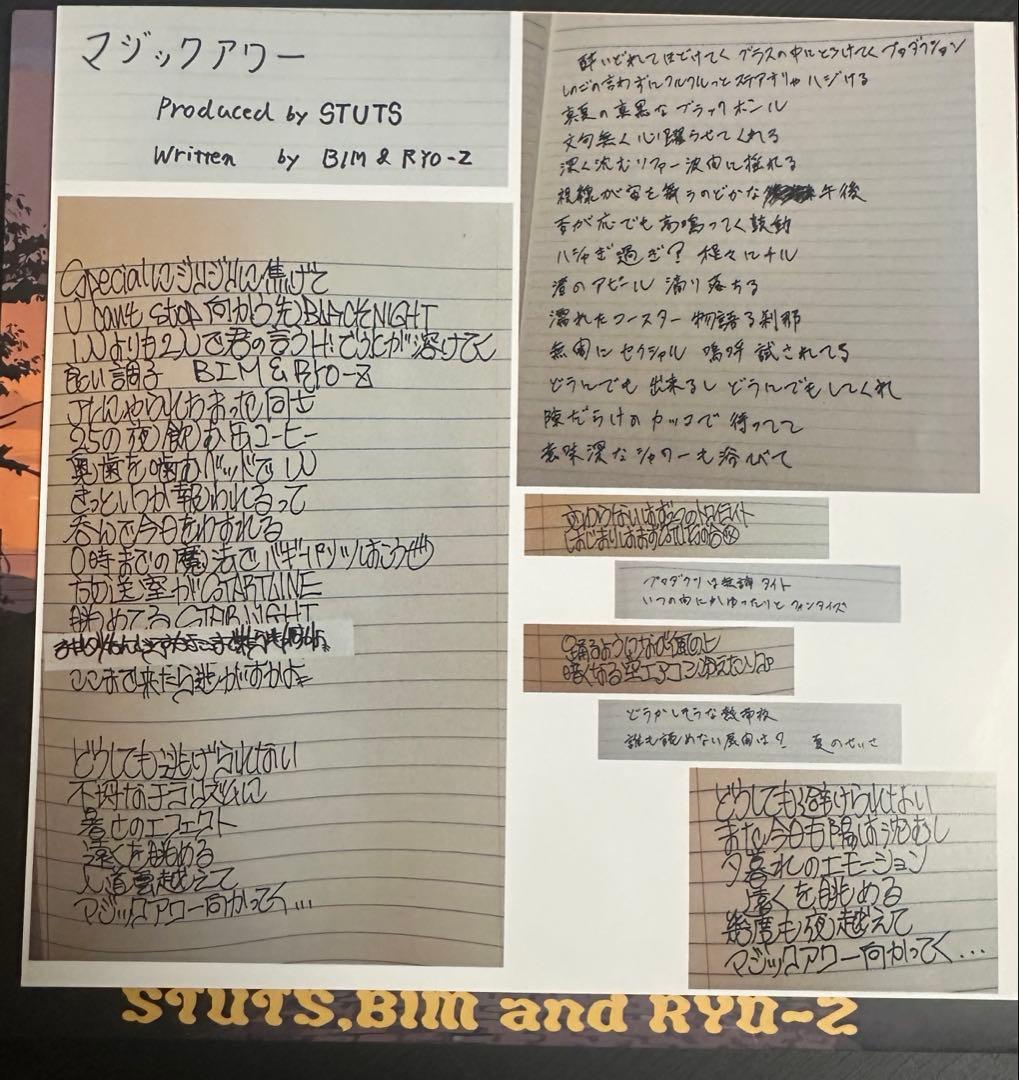 マジックアワー
Produced by STUTS
Written by BIM & RYO-Z
Specialにジリジリに焦げて
U can't stop 向かう先 BLACK NIGHT
1人よりも2人で君の言う
が溶けてく
良い調子 BIM & RYO-Z
25の夜 飲む缶コーヒー
奥歯を噛む ベッドで1人
きっといつか報われるって
呑んで今日をわすれる
0時までの魔法で
放送室がSTART LINE
眺めてる STAR NIGHT
ここまで来たら逃がすかよ
どうしても逃げられない
不埒なテラリズムに
暑さのエフェクト
遠くを眺める
入道雲越えて
マジックアワー向かってく...
酔いどれてほどけてく グラスの中にとろけてく
しのごの言わずにクルクルっとステアすりゃハジける
真夏の真黒なブラックホール
文句無く心躍らせてくれる
深く沈むソファー 波間に揺れる
視線が宙を舞うのどかな午後
否が応でも高鳴ってく鼓動
ハシャぎ過ぎ? 程々にチル
渚のアピール 滴り落ちる
濡れたコースター 物語る刹那
無闇にセクシャル 嗚呼 試されてる
どうにでも出来るし どうにでもしてくれ
隙だらけのカッコで待ってて
意味深なシャワーも浴びて
変わらないはずの
はじまりはまず
いつの間にかゆったりと
踊るようになびく風の
暗くなる空 エアコン冷えた
どうかしそうな熱帯夜
誰も読めない展開は? 夏のせいさ
どうしても避けられない
また今日も陽は沈むし
夕暮れのエモーション
遠くを眺める
幾度も夜越えて
マジックアワー向かってく...
STUTS, BIM and RYO-Z